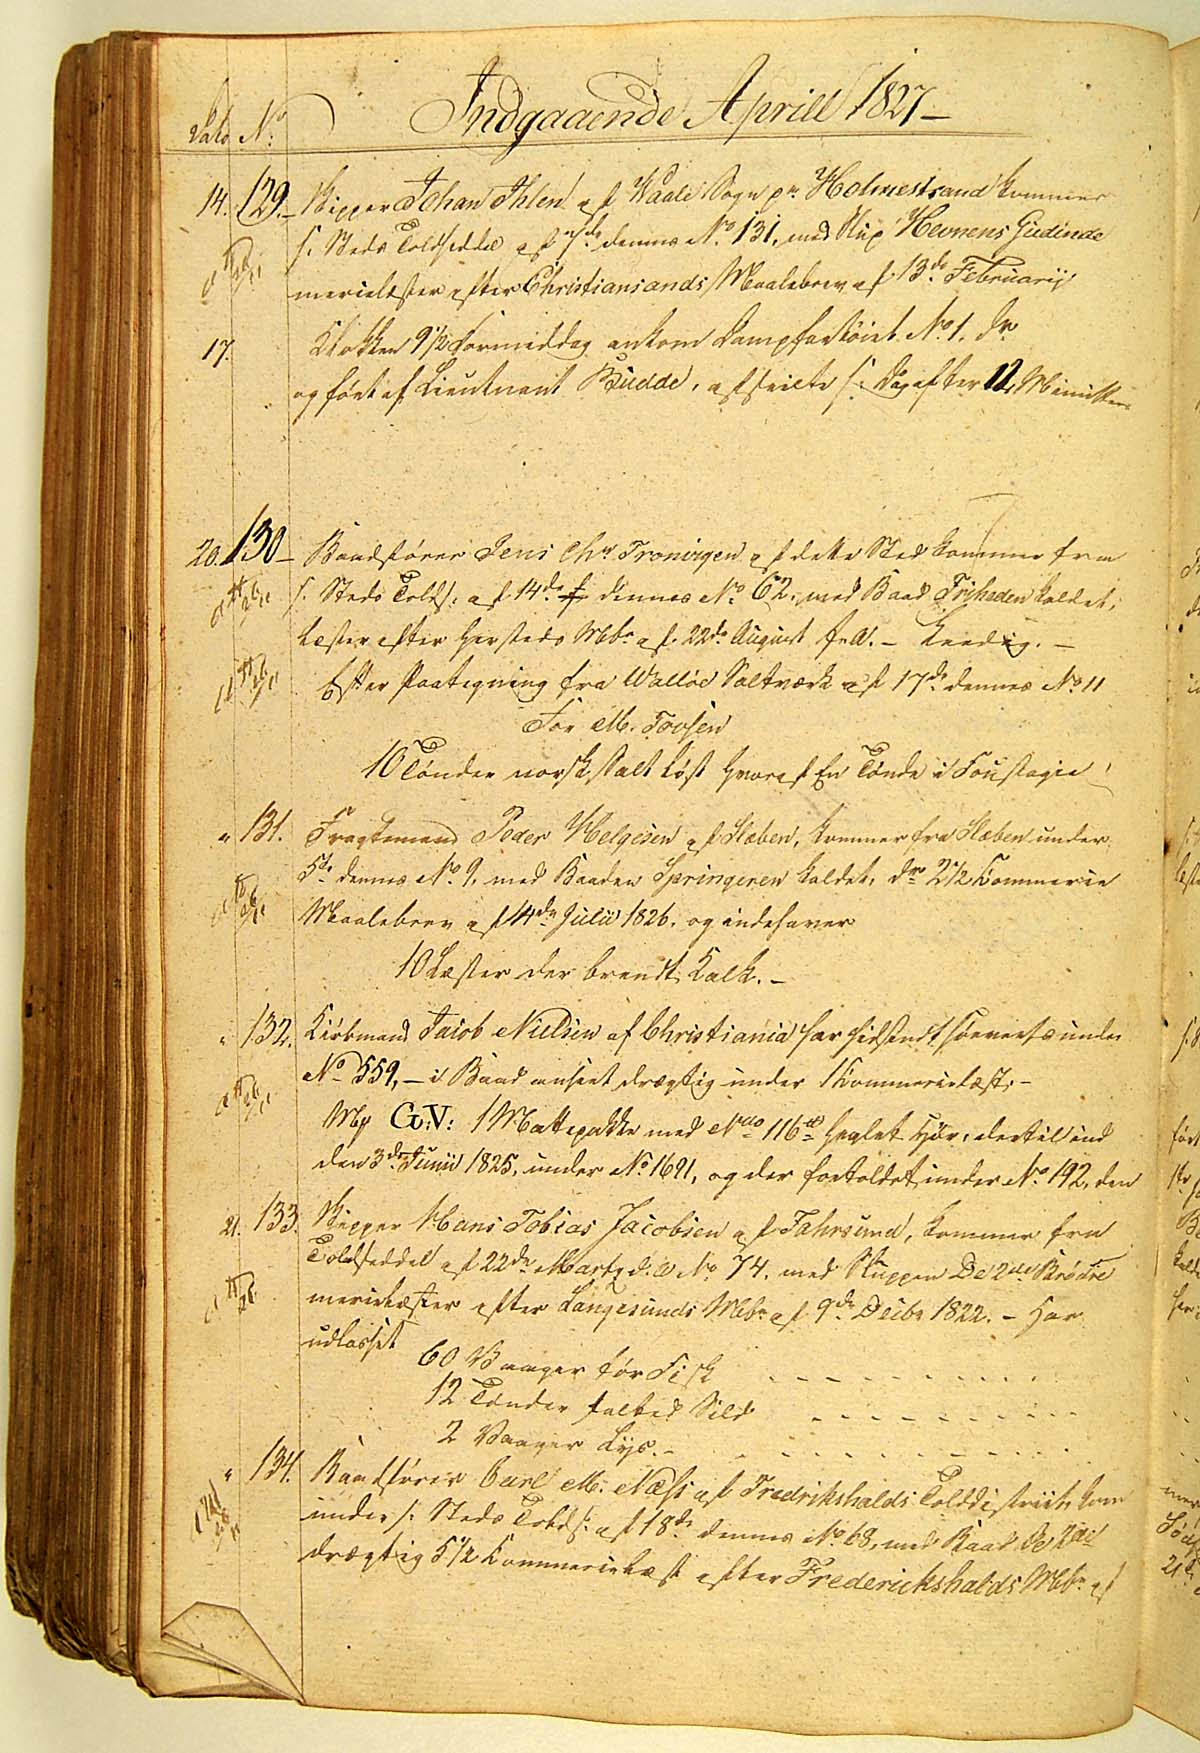 Indgaaende Aprill 1827 –
Dato No:
14. 129. – Skipper Johan Ihlen af Vaale Sogn pr Holmestrand kommer
s. Steds Toldseddel af 7de dennes No 131, med Slup Hevnens Gudinde
mercielæster efter Christiansands Maalebrev af 13de Februarij
17. Klokken 9 1/2 Formiddag ankom Dampfartöiet No 1.
og fört af Lieutnant Budde, afseilte s. Dag efter 12 Minutter
20. 130 – Baadförer Jens Chr Troningen af dette Sted kommer fra
s. Steds Tolds: af 14de dennes No 62, med Baad Friheden kaldet,
Læster efter hersteds Mbr af 22de August f. A. – Leedig. –
Efter Paategning fra Walløe Saltværk af 17de dennes No 11
For M. Foysen
10 Tönder norsk Salt löst hvoraf En Tönde i Foustagie
" 131. Fragtemand Peder Helgesen af Slæben, kommer fra Slæben under
5te dennes No 9, med Baaden Springeren kaldet, dr. 2 1/2 Commercie
Maalebrev af 14de Julii 1826. og indehaver
10 Læster der brendt Kalk. –
" 132. Kiöbmand Jacob Nielsen af Christiania har hidsendt under
No 559, – i Baad anseet drægtig under 1 Commercielæst, –
Mrk G:V: 1 Mattepakke med Nto 116 ℔ Heglet Hör, dertil ind
den 3de Junii 1825, under No 1691, og der fortoldet under No 192, den
21. 133. Skipper Hans Tobias Jacobsen af Fahrsund, kommer fra
Toldseddel af 22de Marty d. A. No 74. med Sluppen De 2de Brødre
mercielæster efter Langesunds Mbr af 9de Decbr 1822. – Har
udlosset
60 Vaager tör Fisk
12 Tönder saltet Sild
2 Vaager Lys. –
" 134. Baadförer Carl M: Næss af Fredrikshalds Tolddistrict, kom
under s. Steds Tolds: af 18de dennes No 68, med Baad De 2de
drægtig 5 1/2 Commercielæst efter Frederickshalds Mbr af